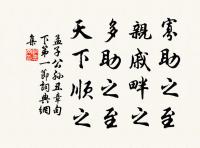 寡助之至
親戚畔之
多助之至
天下順之
孟子公孫丑章句
下第一節詞典網
集